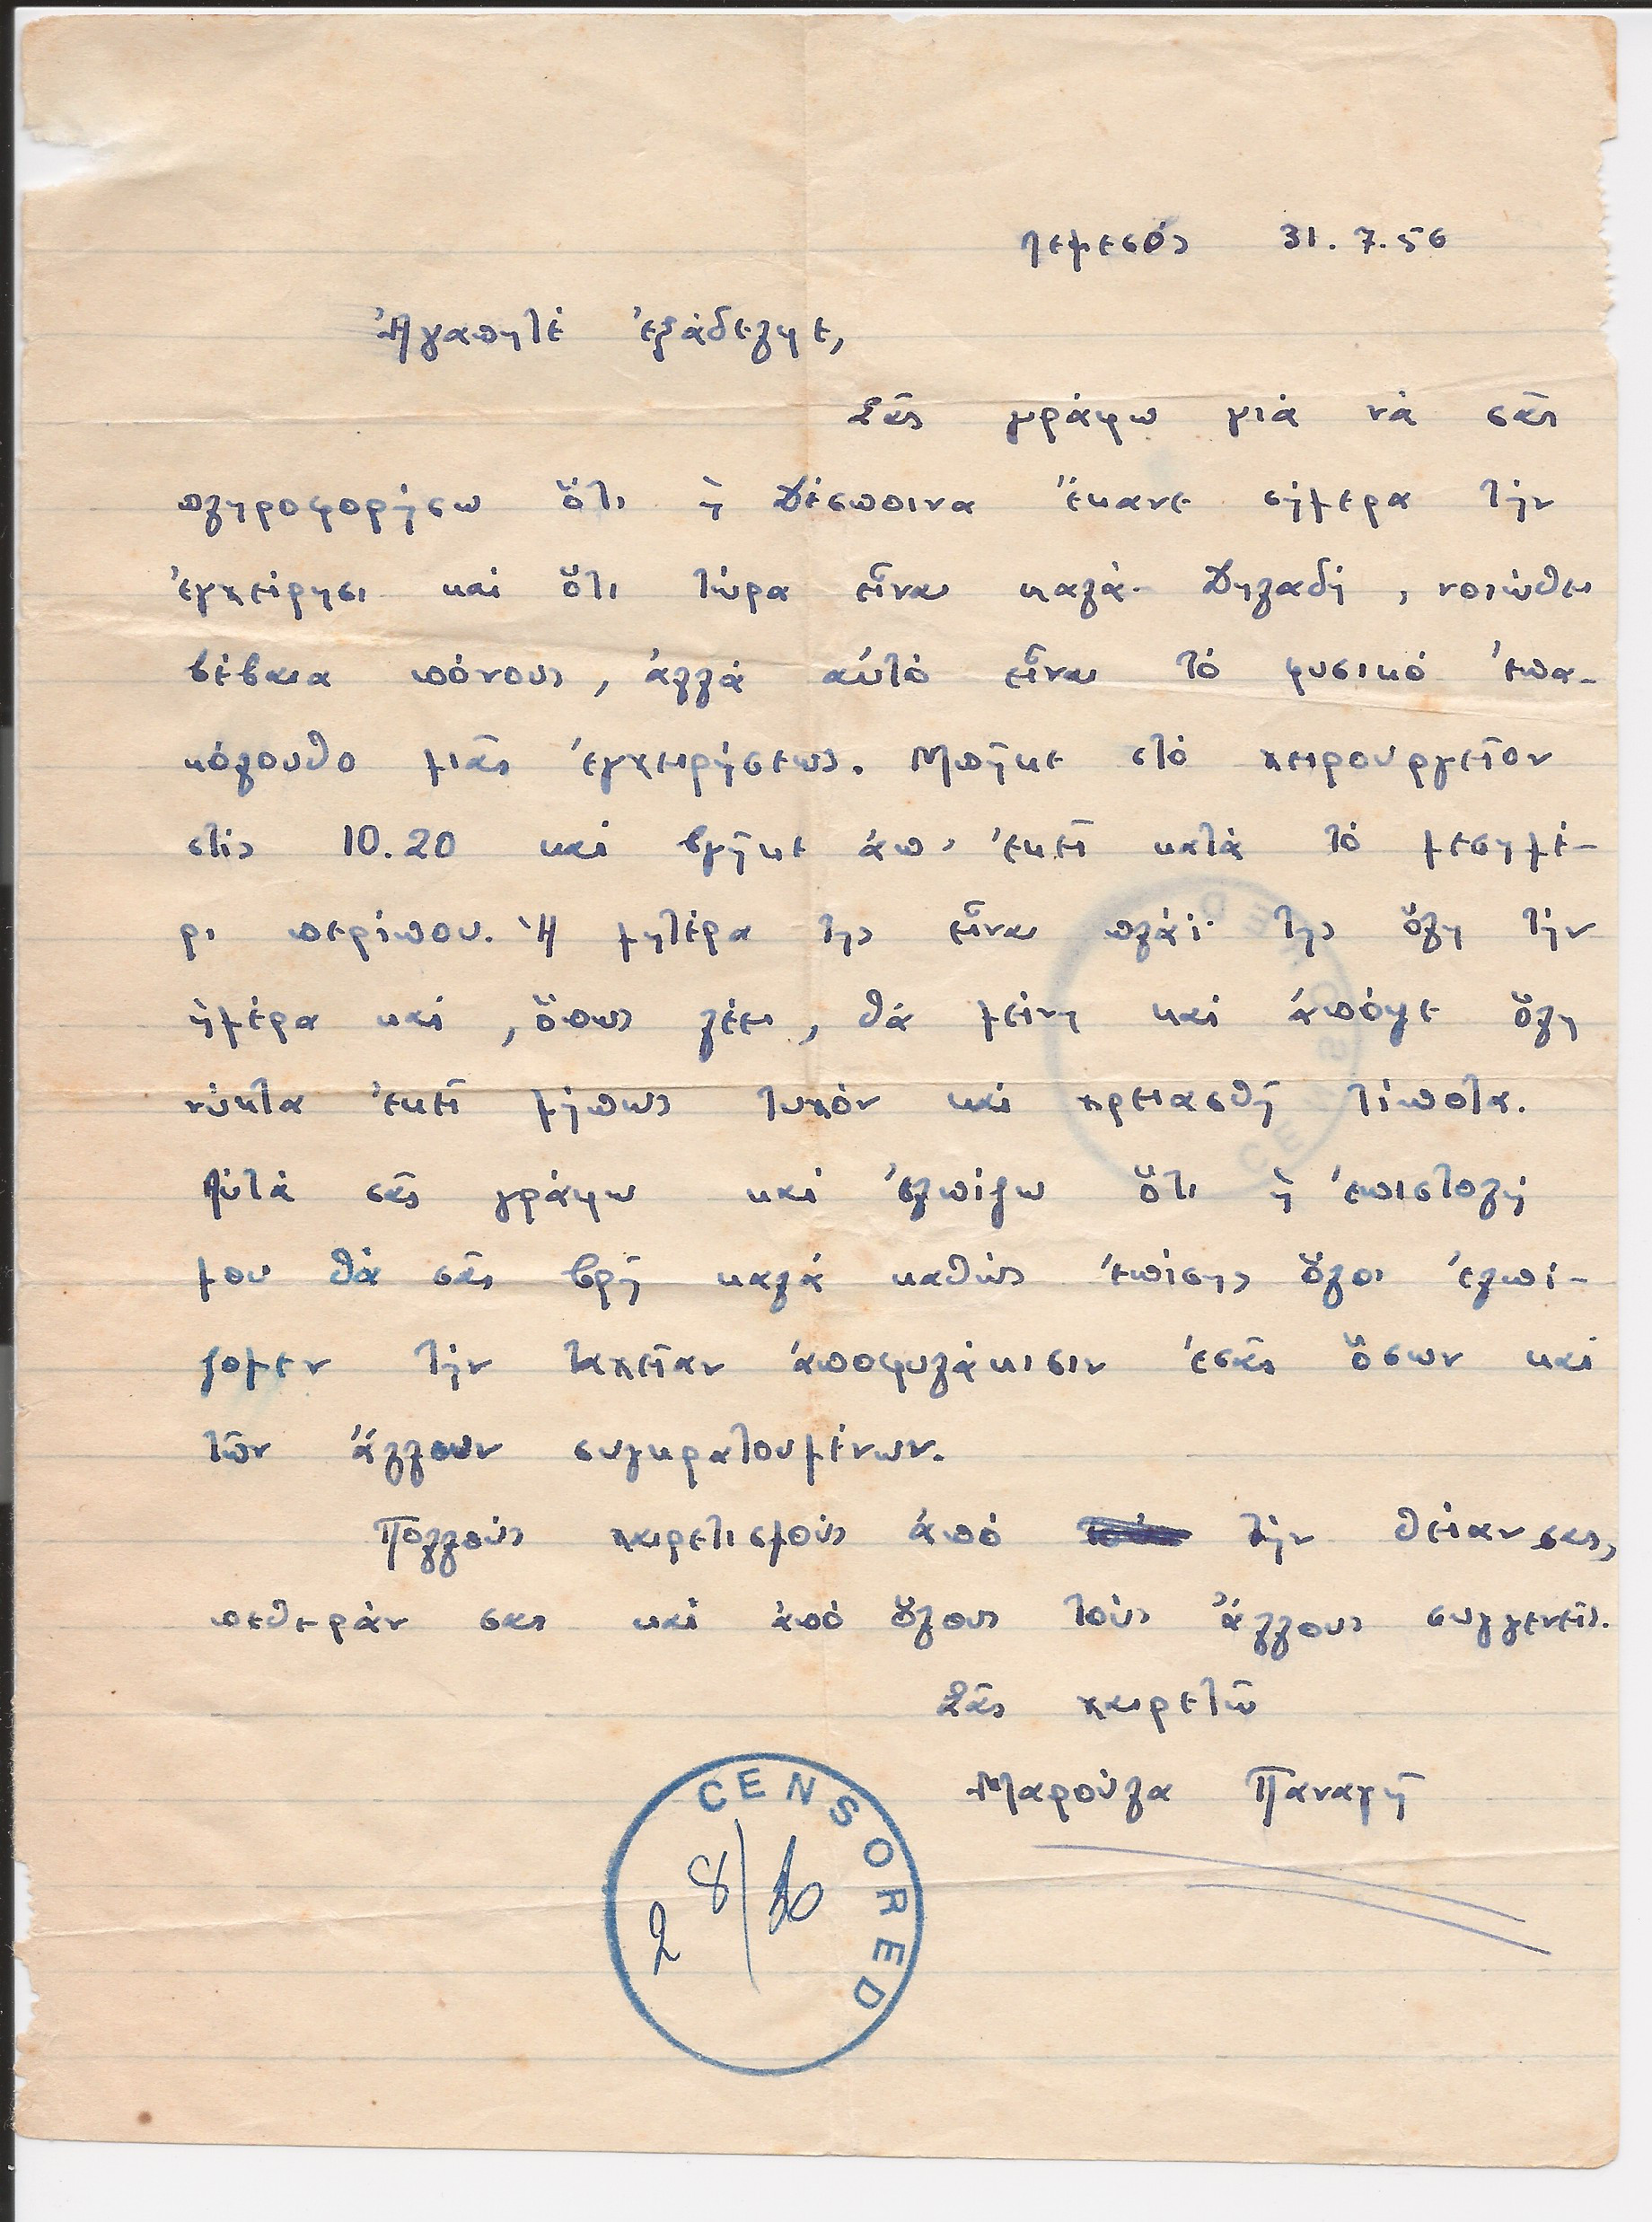 Λεμεσός 31.7.56
Ἀγαπητέ ἐξάδελφε,
Σᾶς γράφω γιά νά σᾶς
πληροφορήσω ὅτι ἡ Δέσποινα ἔκανε σήμερα τήν
ἐγχείρησι καί ὅτι τώρα εἶναι καλά. Δηλαδή, νοιώθει
βέβαια πόνους, ἀλλά αὐτό εἶναι τό φυσικό ἐπα-
κόλουθο μιᾶς ἐγχειρήσεως. Μπῆκε στό χειρουργεῖον
στίς 10.20 καί βγῆκε ἀπ' ἐκεῖ κατά τό μεσημέ-
ρι περίπου. Ἡ μητέρα της εἶναι πλάϊ της ὅλη τήν
ἡμέρα καί, ὅπως λέει, θά μείνη καί ἀπόψε ὅλη
νύκτα ἐκεῖ μήπως τυχόν καί χρειασθῆ τίποτα.
Αὐτά σᾶς γράφω καί ἐλπίζω ὅτι ἡ ἐπιστολή
μου θά σᾶς βρῆ καλά καθώς ἐπίσης ὅλοι ἐλπί-
ζομεν τήν ταχεῖαν ἀποφυλάκισιν ἐσᾶς ὅσων καί
τῶν ἄλλων συγκρατουμένων.
Πολλούς χαιρετισμούς ἀπό τήν θείαν σας,
πεθεράν σας καί ἀπό ὅλους τούς ἄλλους συγγενεῖς.
Σᾶς χαιρετῶ
Μαρούλα Παναγῆ
CENSORED
2 8/